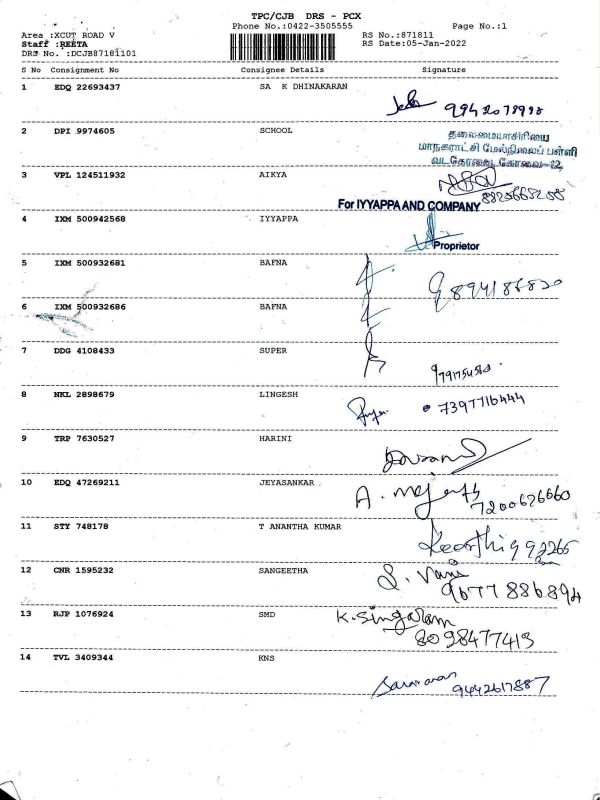 TPC/CJB DRS - PCX
Phone No.:0422-3505555 Page No.:1
Area :XCUT ROAD V RS No.:871811
Staff :REETA RS Date:05-Jan-2022
DRS No. :DCJB87181101
S No Consignment No Consignee Details Signature
1 EDQ 22693437 SA K DHINAKARAN
2 DPI 9974605 SCHOOL
தலைமையாசிரியை
மாநகராட்சி மேல்நிலைப் பள்ளி
வடகோவை, கோவை-12
3 VPL 124511932 AIKYA
For IYYAPPA AND COMPANY
4 IXM 500942568 IYYAPPA
Proprietor
5 IXM 500932681 BAFNA
6 IXM 500932686 BAFNA
7 DDG 4108433 SUPER
8 NKL 2898679 LINGESH 7397716444
9 TRP 7630527 HARINI
10 EDQ 47269211 JEYASANKAR
7200626660
11 STY 748178 T ANANTHA KUMAR
12 CNR 1595232 SANGEETHA S. Vani
9677886894
13 RJP 1076924 SMD K. Singaram
8098477413
14 TVL 3409344 KNS
Saravanan 9442617887